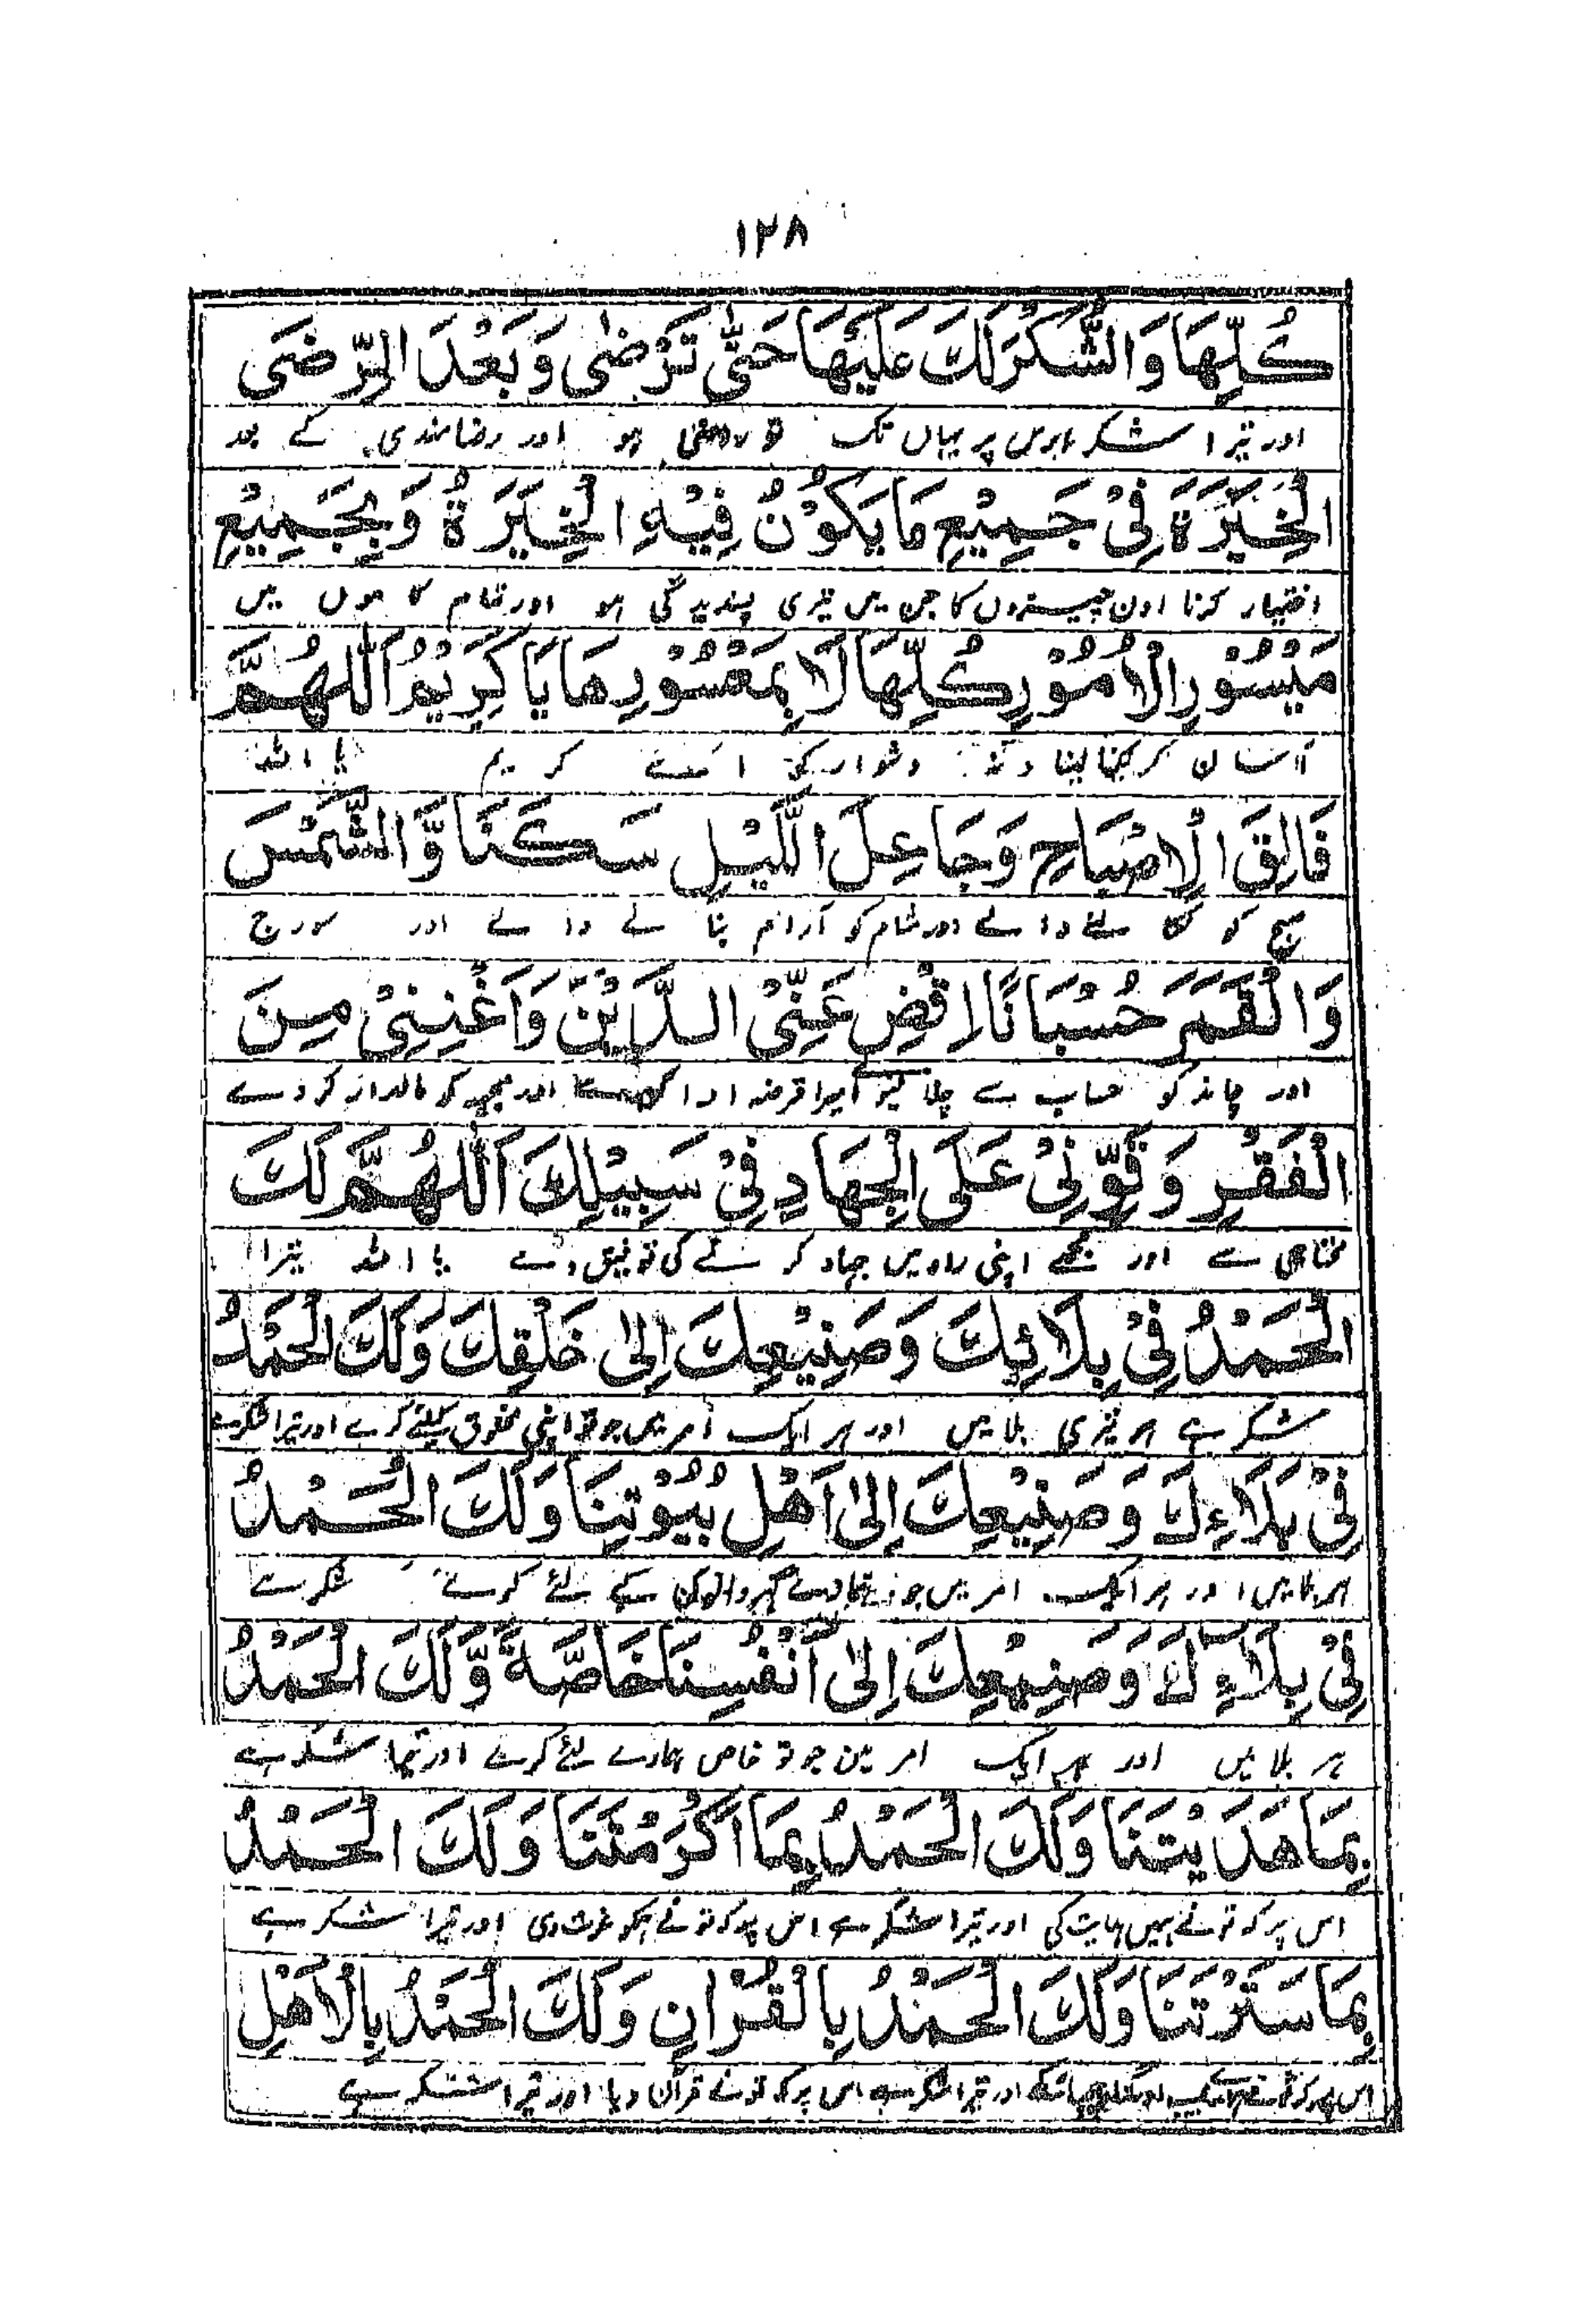 ۱۲۸
كُلِّهَا وَالشُّكْرَ لَكَ عَلَيْهَا حَتّٰى تَرْضٰى وَبَعْدَ الرِّضَى
اور تیرا شکر پر یہاں تک تو راضی ہو اور رضامندی کے بعد
الْخِيَرَةَ فِيْ جَمِيْعِ مَا يَكُوْنُ فِيْهِ الْخِيَرَةُ وَبِجَمِيْعِ
اختیار کرنا اون چیزوں کا جن میں تیری پسندیدگی ہو اور تمام کاموں میں
مَيْسُوْرِ الْاُمُوْرِ كُلِّهَا لَا بِمَعْسُوْرِهَا يَا كَرِيْمُ اَللّٰهُمَّ
آسان کر دشوار کی اے کریم یا اللہ
فَالِقَ الْاِصْبَاحِ وَجَاعِلَ اللَّيْلِ سَكَنًا وَّالشَّمْسَ
صبح کو نکالنے والے اور شام کو آرام بنانے والے اور سورج
وَالْقَمَرَ حُسْبَانًا اِقْضِ عَنِّيْ الدَّيْنَ وَاَغْنِنِيْ مِنَ
اور چاند کو حساب سے میرا قرضہ ادا اور مجھ کو مالدار کر دے
الْفَقْرِ وَقَوِّنِيْ عَلَى الْجِهَادِ فِيْ سَبِيْلِكَ اَللّٰهُمَّ لَكَ
محتاجی سے اور مجھے اپنی راہ میں جہاد کرنے کی توفیق دے یا اللہ تیرا
الْحَمْدُ فِيْ بِلَائِكَ وَصَنِيْعِكَ اِلٰى خَلْقِكَ وَلَكَ الْحَمْدُ
شکر ہے ہر تیری بلا میں اور ہر ایک امر میں جو تو اپنی مخلوق کیلئے کرے اور تیرا شکر ہے
فِيْ بَلَاءِكَ وَصَنِيْعِكَ اِلٰى اَهْلِ بُيُوْتِنَا وَلَكَ الْحَمْدُ
ہر بلا میں اور ہر ایک امر میں جو لئے کرے شکر ہے
فِيْ بِلَاءِكَ وَصَنِيْعِكَ اِلٰى اَنْفُسِنَا خَاصَّةً وَّلَكَ الْحَمْدُ
ہر بلا میں اور ہر ایک امر میں جو تو خاص ہمارے لئے کرے اور شکر ہے
بِمَا هَدَيْتَنَا وَلَكَ الْحَمْدُ بِمَا اَكْرَمْتَنَا وَلَكَ الْحَمْدُ
اس پر کہ تو نے ہمیں ہدایت کی اور تیرا شکر ہے اس پر کہ تو نے ہمکو عزت دی اور تیرا شکر ہے
بِمَا سَتَرْتَنَا وَلَكَ الْحَمْدُ بِالْقُرْاٰنِ وَلَكَ الْحَمْدُ بِالْاَهْلِ
اور تیرا شکر ہے اس پر کہ تو نے قرآن دیا اور تیرا شکر ہے